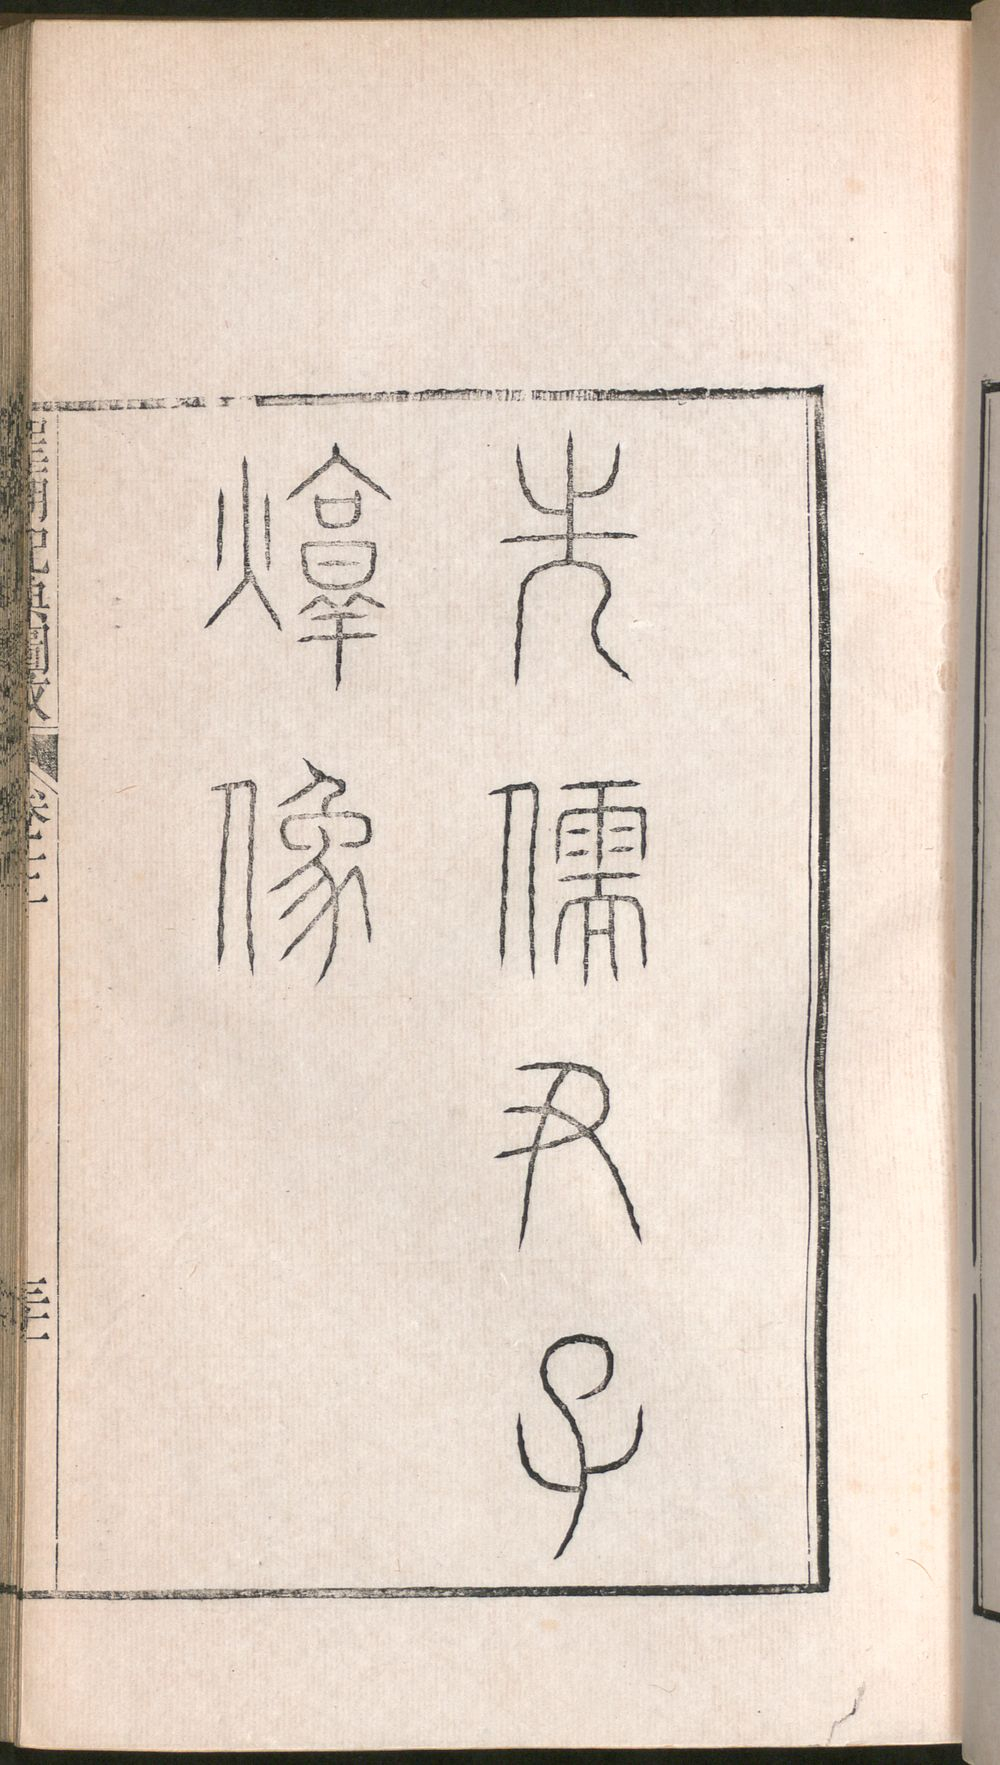 先儒尹子
焞像